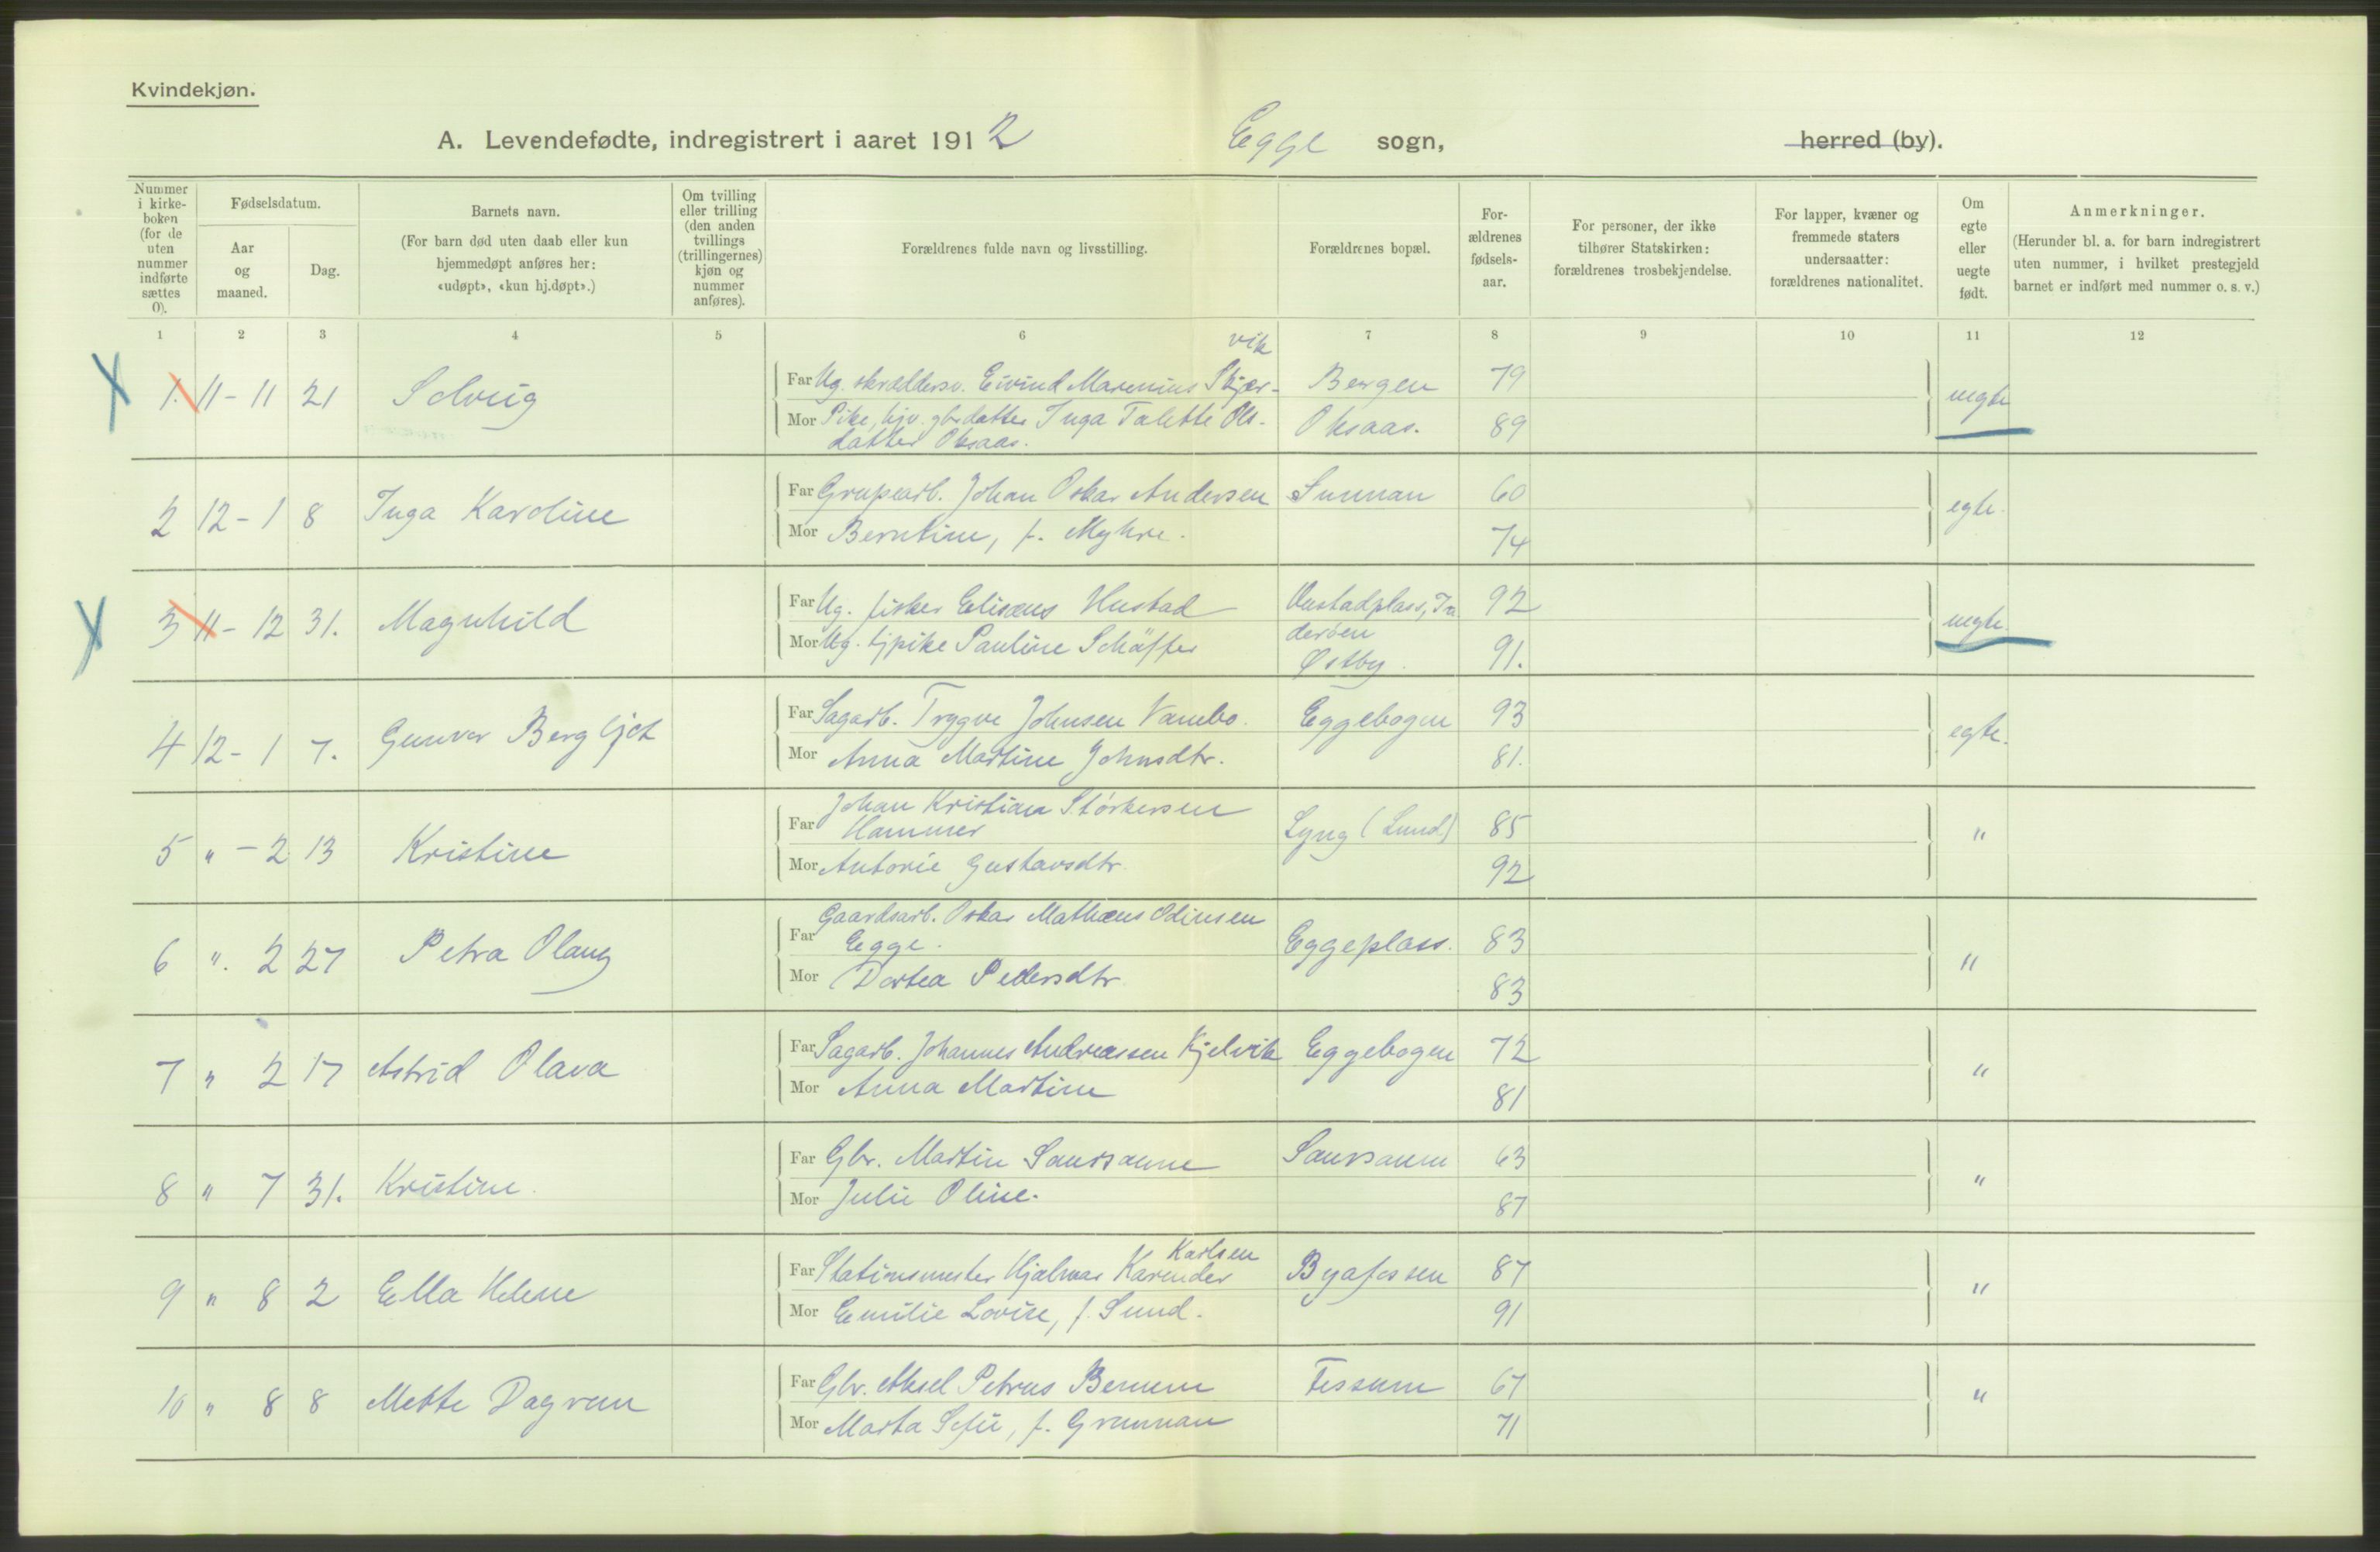 Kvindekjøn.
A. Levendefødte, indregistrert i aaret 1912 Egge sogn, herred (by).
Nummer i kirke-boken (for de uten nummer indførte sættes 0).
Fødselsdatum.
Aar og maaned.
Dag.
Barnets navn.
(For barn død uten daab eller kun hjemmedøpt anføres her: «udøpt», «kun hj.døpt».)
Om tvilling eller trilling (den anden tvillings (trillingernes) kjøn og nummer anføres).
Forældrenes fulde navn og livsstilling.
Forældrenes bopæl.
For-ældrenes fødsels-aar.
For personer, der ikke tilhører Statskirken: forældrenes trosbekjendelse.
For lapper, kvæner og fremmede staters undersaatter: forældrenes nationalitet.
Om egte eller uegte født.
Anmerkninger.
(Herunder bl. a. for barn indregistrert uten nummer, i hvilket prestegjeld barnet er indført med nummer o. s. v.)
1 2 3 4 5 6 7 8 9 10 11 12
vik
1. 11-11 21 Solveig Far Ug. skræddersv. Eivind Marenius Skjer- Bergen 79 uegte
Mor Pike, hjv. gbrdatter Inga Talette Ols- Oksaas. 89
datter Oksaas.
2 12-1 8 Inga Karoline Far Grubearb. Johan Oskar Andersen Sunnan 60 egte.
Mor Berntine, f. Myhre. 74
3 11-12 31. Magnhild Far Ug. fisker Elisæus Hustad Hustadplass, In 92 uegte.
Mor Ug. tjpike Pauline Schäffer derøen 91.
Østby.
4 12-1 7. Gunvor Bergljot Far Sagarb. Trygve Johnsen Vambo. Eggebogen 93 egte.
Mor Anna Martine Johnsdtr. 81.
Johan Kristian Størkersen
5 " - 2 13 Kristine Far Hammer Lyng (Lund) 85 "
Mor Antonie Gustavsdtr. 92
Gaardsarb. Oskar Mathæus Odinsen
6 ". 2 27 Petra Olaug Far Egge. Eggeplass. 83 "
Mor Dortea Pedersdtr. 83
7 " 2 17 Astrid Olava Far Sagarb. Johannes Andreassen Kjelvik Eggebogen 72 "
Mor Anna Martine 81
8 " 7 31. Kristine. Far Gbr. Martin Saursaune Saursaum 63 "
Mor Julie Oline. 87
Karlsen
9 " 8 2 Ella Helene Far Stationsmester Hjalmar Karender Byafossen 87 "
Mor Emilie Lovise, f. Sund. 91
10 " 8 8 Mette Dagrun Far Gbr. Aksel Petrus Bemum Fossum 67 "
Mor Marta Sofie, f. Grunnan 71